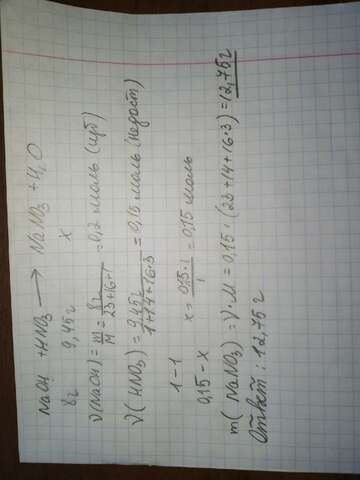 NaOH + HNO₃ ⟶ NaNO₃ + H₂O
8г 9,45г x
ν(NaOH) = m/M = 8г/23+16+1 = 0,2 моль (изб)
ν(HNO₃) = 9,45г/1+14+16·3 = 0,15 моль (недост)
1 – 1
0,15 – x x = 0,15·1/1 = 0,15 моль
m(NaNO₃) = ν·M = 0,15·(23+14+16·3) = 12,75г
Ответ: 12,75г